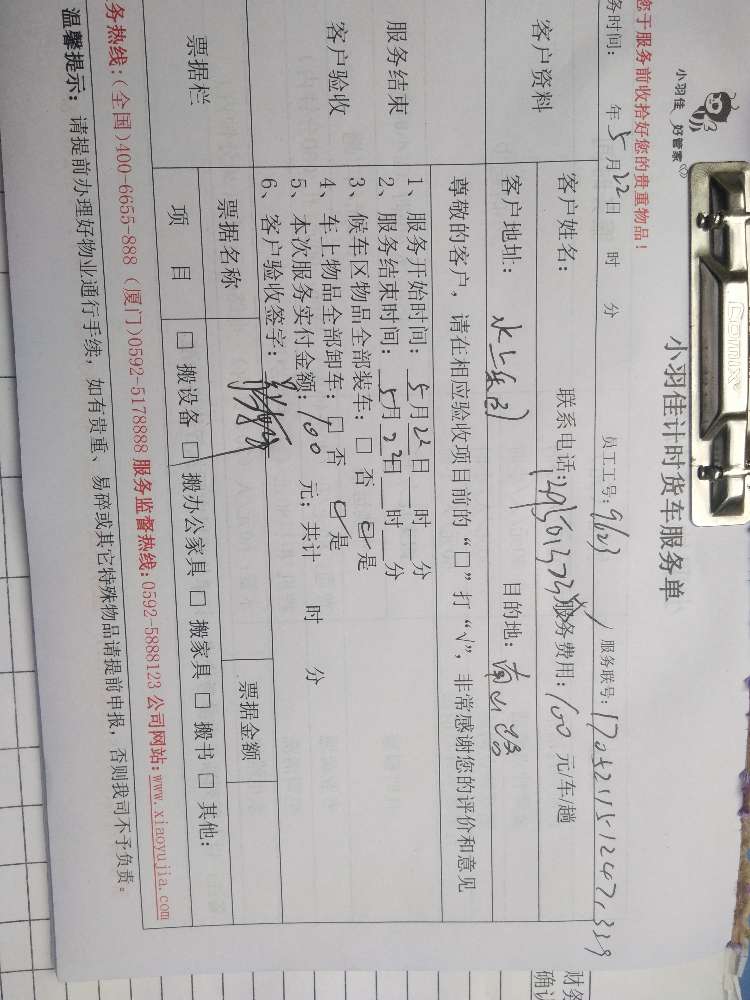 小羽佳 好管家
小羽佳计时货车服务单
您于服务前收拾好您的贵重物品！
务时间： 年5月22日 时 分 员工工号：9623 服务联号：
客户资料 客户姓名： 联系电话： 服务费用：100 元/车/趟
客户地址： 水上乐园 目的地：
尊敬的客户，请在相应验收项目前的“□”打“√”，非常感谢您的评价和意见
服务结束
客户验收
1、服务开始时间：5月22日__时__分
2、服务结束时间：5月22日__时__分
3、候车区物品全部装车：□ 否 ☑是
4、车上物品全部卸车：□ 否 ☑是
5、本次服务实付金额：100 元；共计 时 分
6、客户验收签字：
票据栏 票据名称 票据金额
项 目 □ 搬设备 □ 搬办公家具 □ 搬家具 □ 搬书 □ 其他：
务热线：(全国)400-6655-888 (厦门)0592-5178888 服务监督热线：0592-5888123 公司网站：www.xiaoyujia.com
温馨提示：请提前办理好物业通行手续，如有贵重、易碎或其它特殊物品请提前申报，否则我司不予负责。
Comix
财务
确认